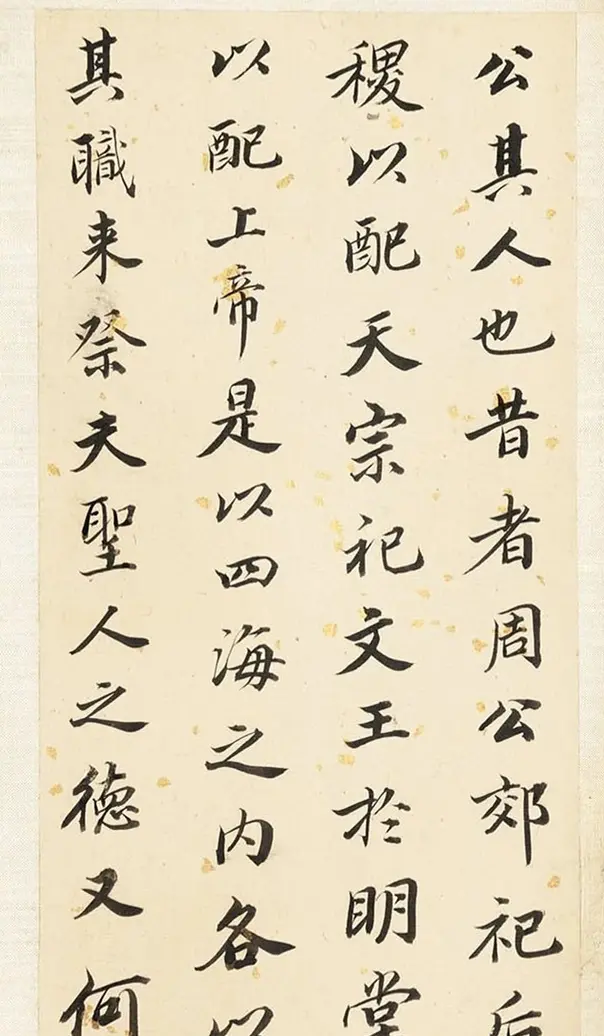 公其人也昔者周公郊祀后
稷以配天宗祀文王於明堂
以配上帝是以四海之内各以
其職来祭夫聖人之徳又何